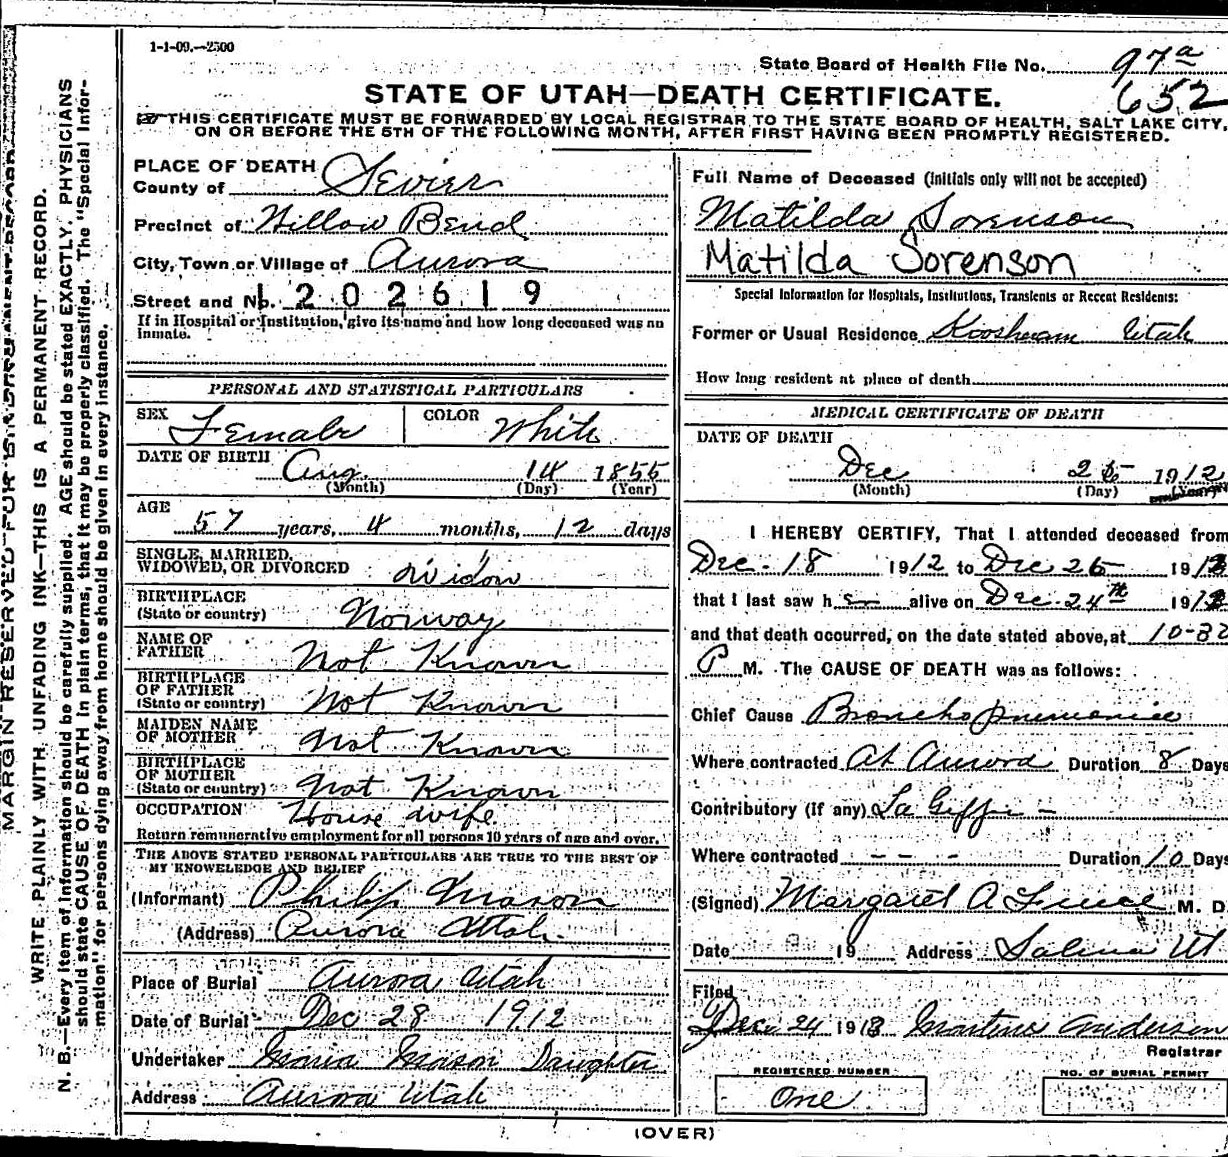 1-1-09.—2500
State Board of Health File No. 97a
652
STATE OF UTAH—DEATH CERTIFICATE.
THIS CERTIFICATE MUST BE FORWARDED BY LOCAL REGISTRAR TO THE STATE BOARD OF HEALTH, SALT LAKE CITY,
ON OR BEFORE THE 5TH OF THE FOLLOWING MONTH, AFTER FIRST HAVING BEEN PROMPTLY REGISTERED.
MARGIN RESERVED FOR
WRITE PLAINLY WITH UNFADING INK—THIS IS A PERMANENT RECORD.
N. B.—Every item of information should be carefully supplied. AGE should be stated EXACTLY. PHYSICIANS
should state CAUSE OF DEATH in plain terms, that it may be properly classified. The "Special Infor-
mation" for persons dying away from home should be given in every instance.
PLACE OF DEATH
County of Sevier
Precinct of Willow Bend
City, Town or Village of Aurora
Street and No. 1202619
If in Hospital or Institution, give its name and how long deceased was an
inmate.
PERSONAL AND STATISTICAL PARTICULARS
SEX Female COLOR White
DATE OF BIRTH Aug 14 1855
(Month) (Day) (Year)
AGE 57 years, 4 months, 12 days
SINGLE, MARRIED,
WIDOWED, OR DIVORCED widow
BIRTHPLACE
(State or country) Norway
NAME OF
FATHER Not Known
BIRTHPLACE
OF FATHER
(State or country) Not Known
MAIDEN NAME
OF MOTHER Not Known
BIRTHPLACE
OF MOTHER
(State or country) Not Known
OCCUPATION House wife
Return remunerative employment for all persons 10 years of age and over.
THE ABOVE STATED PERSONAL PARTICULARS ARE TRUE TO THE BEST OF
MY KNOWELEDGE AND BELIEF
(Informant) Philip Mason
(Address) Aurora Utah
Place of Burial Aurora Utah
Date of Burial Dec 28 1912
Undertaker Maria Mason Daughter
Address Aurora Utah
Full Name of Deceased (initials only will not be accepted)
Matilda Sorenson
Matilda Sorenson
Special Information for Hospitals, Institutions, Transients or Recent Residents:
Former or Usual Residence Koosharam Utah
How long resident at place of death
MEDICAL CERTIFICATE OF DEATH
DATE OF DEATH
Dec 26 1912
(Month) (Day) (Year)
I HEREBY CERTIFY, That I attended deceased from
Dec. 18 1912 to Dec 26 191
that I last saw h alive on Dec. 24th 191
and that death occurred, on the date stated above, at 10-
P M. The CAUSE OF DEATH was as follows:
Chief Cause Broncho pneumonia
Where contracted At Aurora Duration 8 Days
Contributory (if any) La Grippe
Where contracted - - - - Duration 10 Days
(Signed) Margaret A M. D
Date 19 Address Salina Ut
Filed
Dec 24 1913 Martinus Anderson
Registrar
REGISTERED NUMBER NO. OF BURIAL PERMIT
One
(OVER)